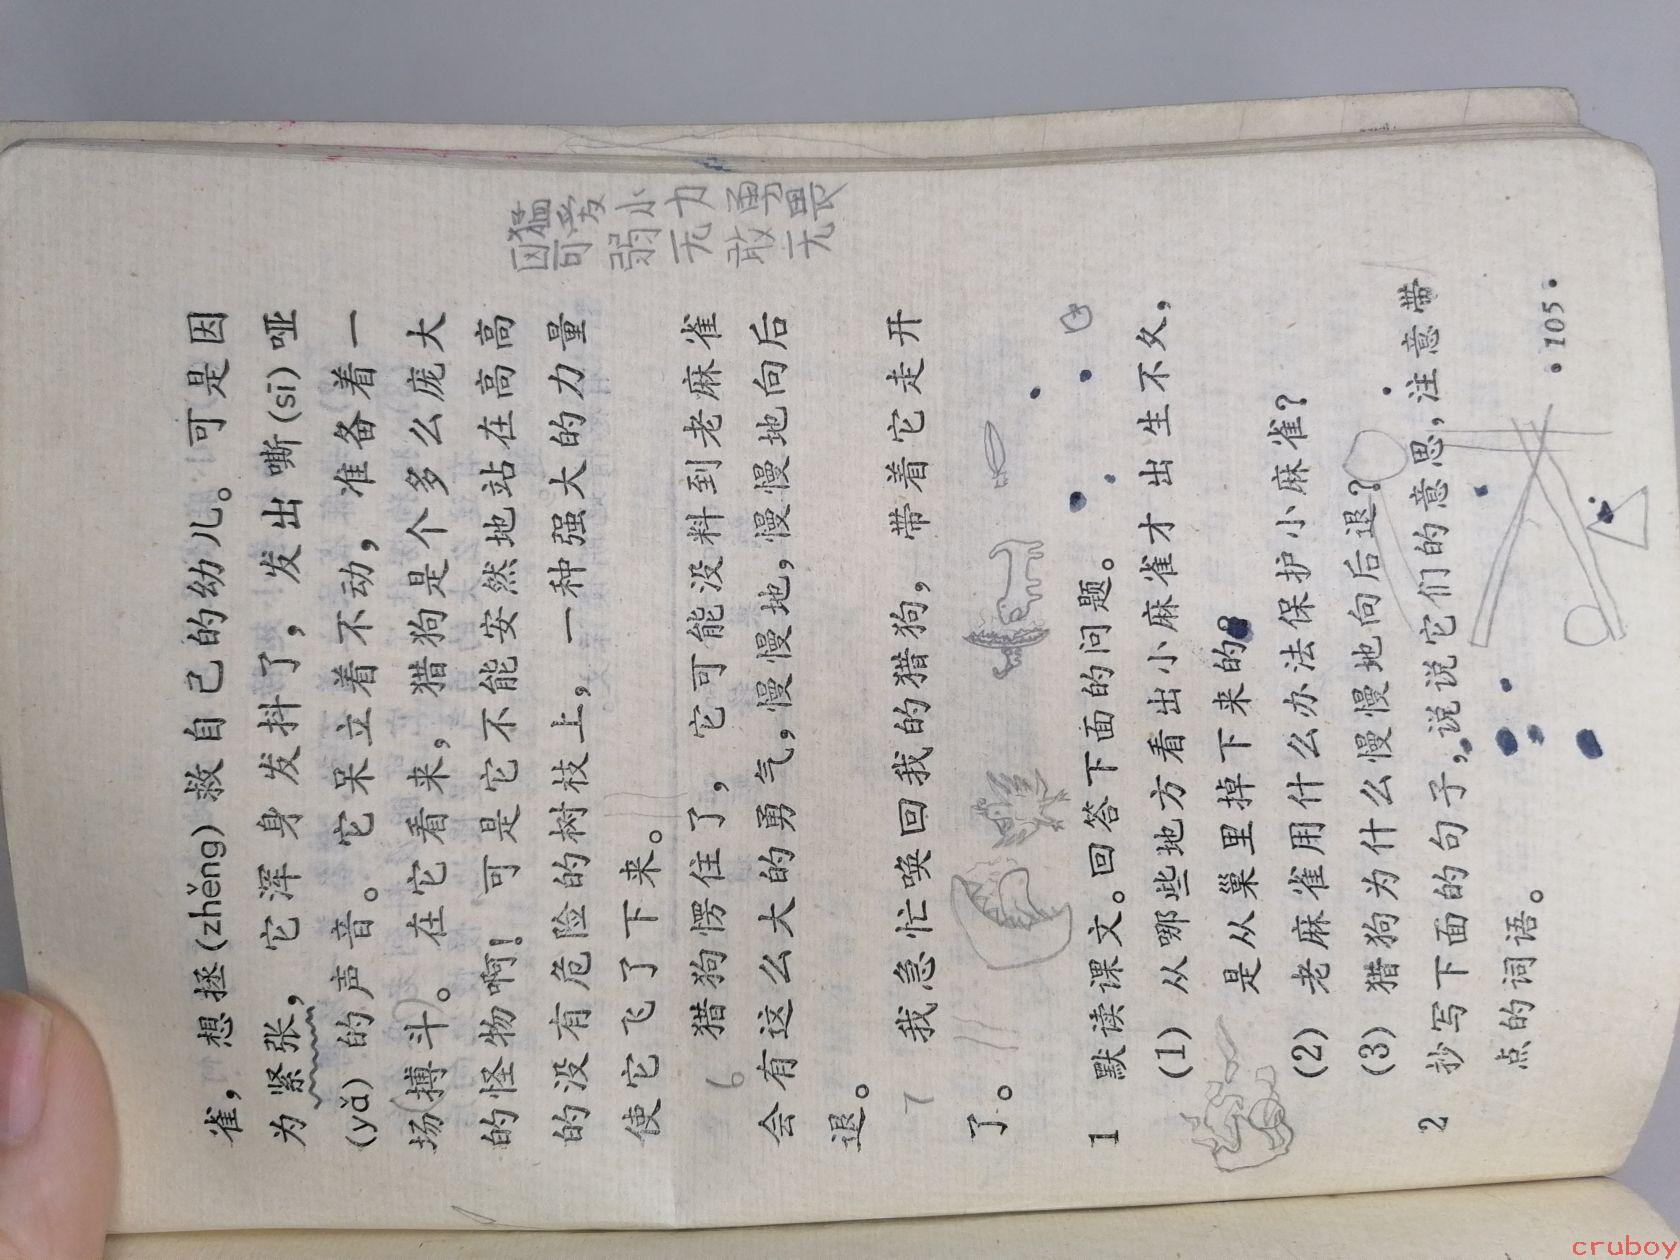 雀，想拯(zhěng)救自己的幼儿。可是因
为紧张，它浑身发抖了，发出嘶(sī)哑
(yǎ)的声音。它呆立着不动，准备着一
场搏斗。在它看来，猎狗是个多么庞大
的怪物啊！可是它不能安然地站在高高
的没有危险的树枝上，一种强大的力量
使它飞了下来。
6 猎狗愣住了，它可能没料到老麻雀
会有这么大的勇气，慢慢地，慢慢地向后
退。
7 我急忙唤回我的猎狗，带着它走开
了。
凶猛
可爱
弱小
无力
勇敢
无畏
1 默读课文。回答下面的问题。
(1) 从哪些地方看出小麻雀才出生不久，
是从巢里掉下来的？
(2) 老麻雀用什么办法保护小麻雀？
(3) 猎狗为什么慢慢地向后退？
2 抄写下面的句子，说说它们的意思，注意带
点的词语。
·105·
cruboy